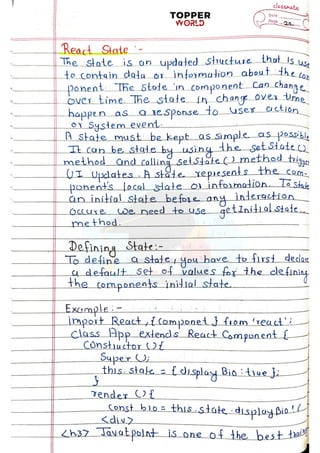 classmate
Date
Page 22
TOPPER
WORLD
React State :-
The state is an updated structure that is use
to contain data or information about the com
ponent. The state in component can change
over time. The state in change over time
happen as a response to user action
or system event.
A state must be kept as simple as possible
It can be state by using the setState()
method and calling setState() method trigger
UI Updates. A state represents the com-
ponent's local state or information. To state
an initial state before any interaction
occure we need to use getInitial state..
method.
Defining State:-
To define a state, you have to first declare
a default set of values for the defining
the components initial state.
Example:-
import React, {componet} from 'react';
Class App extends React Component {
Constructor () {
Super ();
this.state = { display Bio : true };
}
render () {
Const bio = this.state.displayBio ? (
<div>
<h3> Javatpoint is one of the best